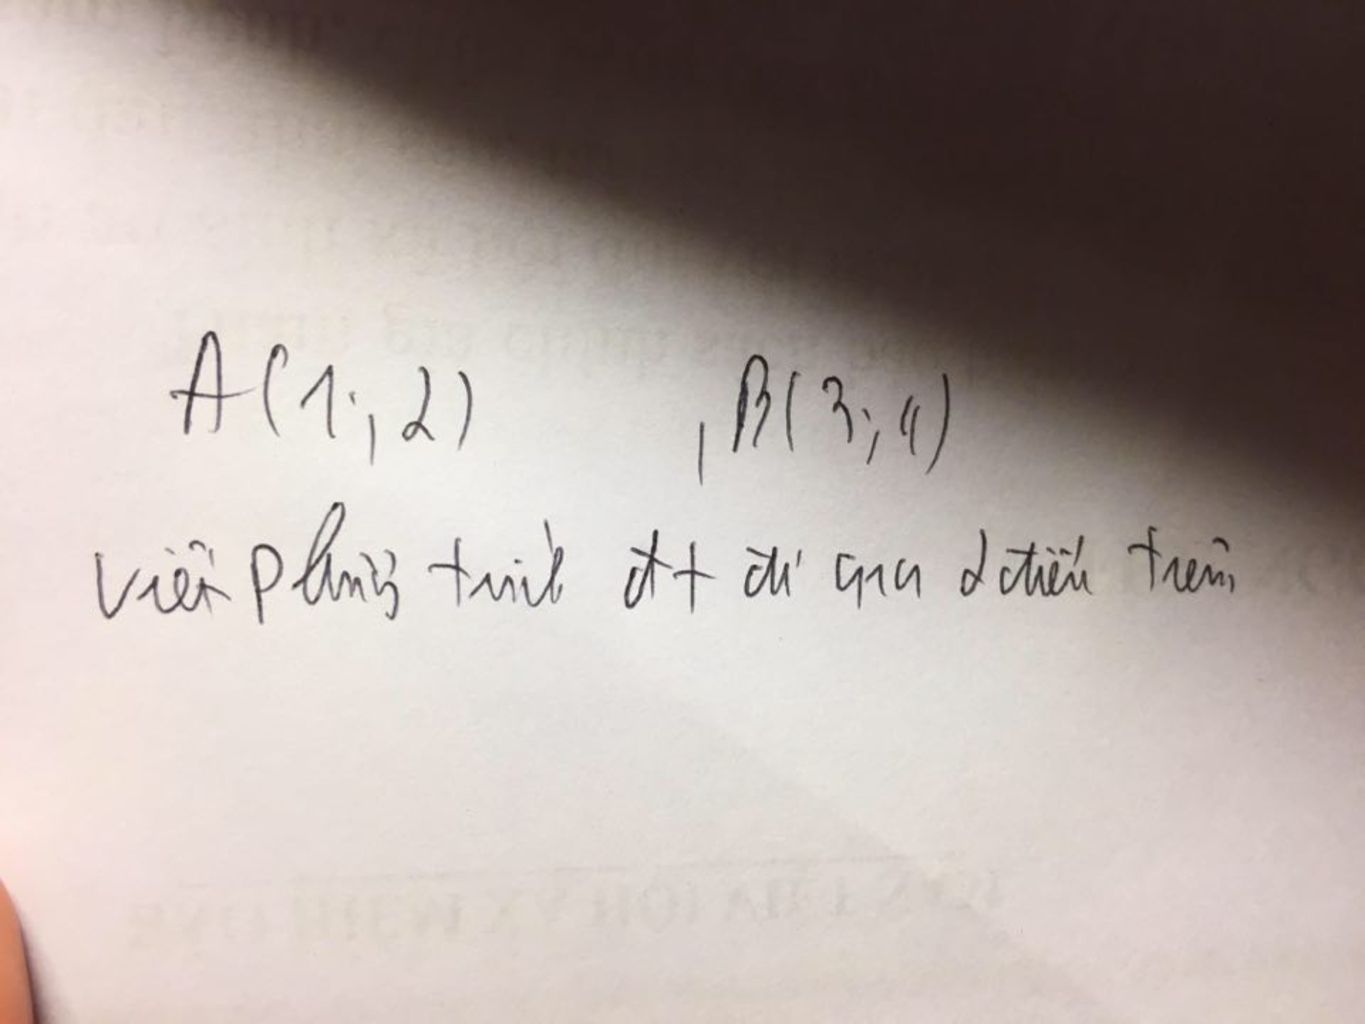 A(1;2) , B(3;4)
viết phương trình đt đi qua 2 điểm trên